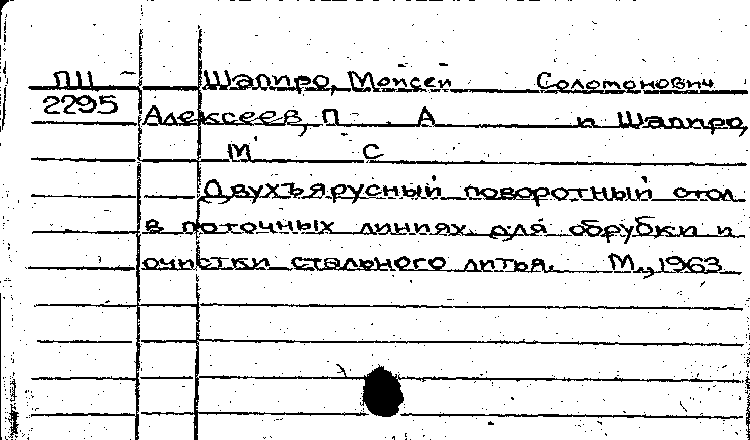 ПШ Шапиро, Моисей Соломонович
2295 Алексеев, П А и Шапиро,
М С
Двухъярусный поворотный стол
в поточных линиях для обрубки и
очистки стального литья. М., 1963